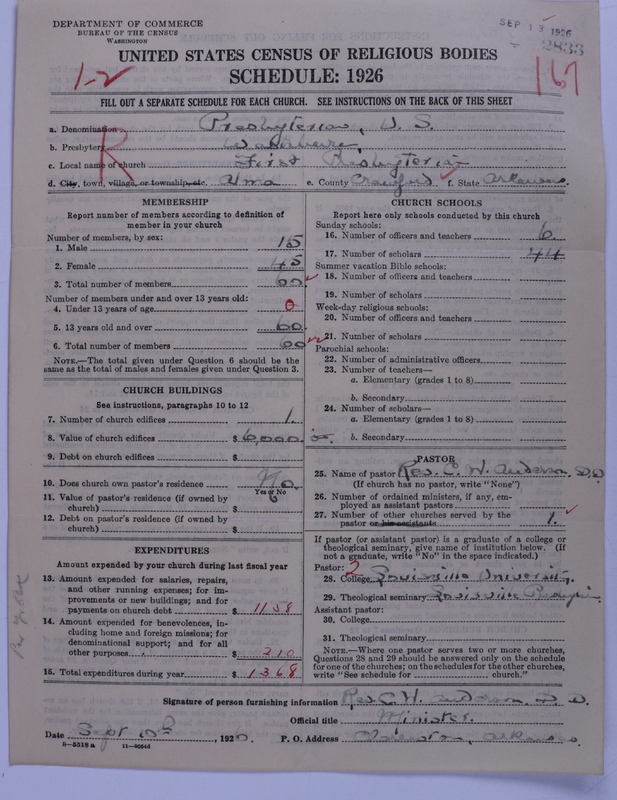 DEPARTMENT OF COMMERCE
BUREAU OF THE CENSUS
WASHINGTON
SEP 13 1926
2833
UNITED STATES CENSUS OF RELIGIOUS BODIES
SCHEDULE: 1926
1-2
167
FILL OUT A SEPARATE SCHEDULE FOR EACH CHURCH. SEE INSTRUCTIONS ON THE BACK OF THIS SHEET
R
a. Denomination Presbyterian, U. S.
b. Presbytery
c. Local name of church First Presbyterian
d. City, town, village, or township, etc. Alma e. County Crawford f. State Arkansas
MEMBERSHIP
Report number of members according to definition of member in your church
Number of members, by sex:
1. Male 15
2. Female 45
3. Total number of members 60
Number of members under and over 13 years old:
4. Under 13 years of age 0
5. 13 years old and over 60
6. Total number of members 60
NOTE.—The total given under Question 6 should be the same as the total of males and females given under Question 3.
CHURCH BUILDINGS
See instructions, paragraphs 10 to 12
7. Number of church edifices 1.
8. Value of church edifices $ 6,000.
9. Debt on church edifices $
10. Does church own pastor's residence No.
Yes or No
11. Value of pastor's residence (if owned by church) $
12. Debt on pastor's residence (if owned by church) $
EXPENDITURES
Amount expended by your church during last fiscal year
13. Amount expended for salaries, repairs, and other running expenses; for improvements or new buildings; and for payments on church debt $ 1158
14. Amount expended for benevolences, including home and foreign missions; for denominational support; and for all other purposes $ 210
15. Total expenditures during year $ 1368
CHURCH SCHOOLS
Report here only schools conducted by this church
Sunday schools:
16. Number of officers and teachers 6.
17. Number of scholars 44
Summer vacation Bible schools:
18. Number of officers and teachers
19. Number of scholars
Week-day religious schools:
20. Number of officers and teachers
21. Number of scholars
Parochial schools:
22. Number of administrative officers
23. Number of teachers—
a. Elementary (grades 1 to 8)
b. Secondary
24. Number of scholars—
a. Elementary (grades 1 to 8)
b. Secondary
PASTOR
25. Name of pastor Rev. C. H. Anderson, D.D.
(If church has no pastor, write "None")
26. Number of ordained ministers, if any, employed as assistant pastors
27. Number of other churches served by the pastor or his assistants 1.
If pastor (or assistant pastor) is a graduate of a college or theological seminary, give name of institution below. (If not a graduate, write "No" in the space indicated.)
Pastor: 2
28. College Louisville University.
29. Theological seminary Louisville
Assistant pastor:
30. College
31. Theological seminary
NOTE.—Where one pastor serves two or more churches, Questions 28 and 29 should be answered only on the schedule for one of the churches; on the schedules for the other churches, write "See schedule for church."
Signature of person furnishing information Rev. C. H. Anderson, D. D.
Official title Minister.
Date Sept 10, 1926. P. O. Address Arkansas.
8—5518 a 11—9054d